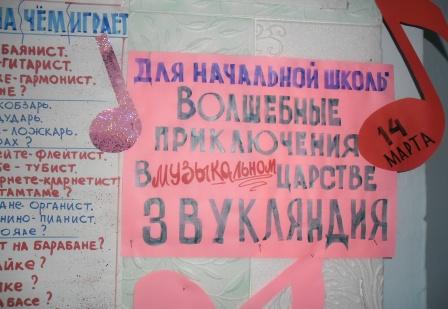 НА ЧЁМ ИГРАЕТ
БАЯНИСТ.
-ГИТАРИСТ.
КЕ-ГАРМОНИСТ.
НЕ?
КОБЗАРЬ.
ДУДАРЬ.
- ЛОЖКАРЬ.
РАХ?
ЕЙТЕ-ФЛЕЙТИСТ.
БЕ - ТУБИСТ.
АРНЕТЕ-КЛАРНЕТИСТ
ТАМТАМЕ?
АНЕ-ОРГАНИСТ.
НИНО-ПИАНИСТ.
РОЯЛЕ?
Т НА БАРАБАНЕ?
АЙКЕ?
ЛКЕ?
АБАСЕ?
ДЛЯ НАЧАЛЬНОЙ ШКОЛЫ
ВОЛШЕБНЫЕ
ПРИКЛЮЧЕНИЯ
В МУЗЫКАЛЬНОМ ЦАРСТВЕ
ЗВУКЛЯНДИЯ
14
МАРТА